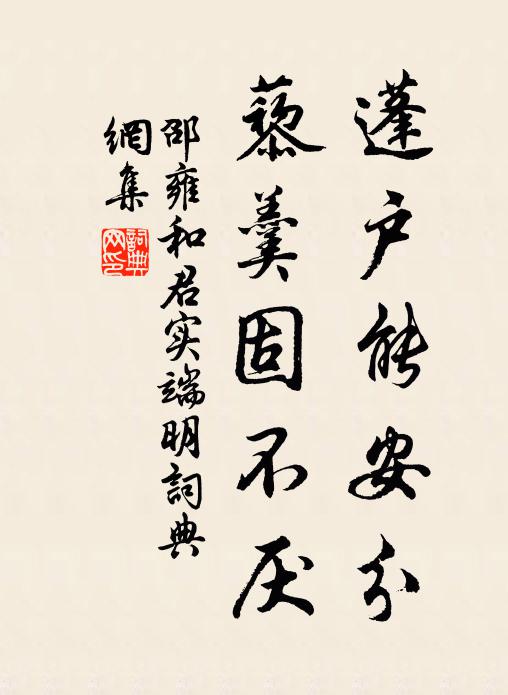 蓬户能安分
藜羹固不厌
邵雍和君实端明詞典
網集
詞典網印